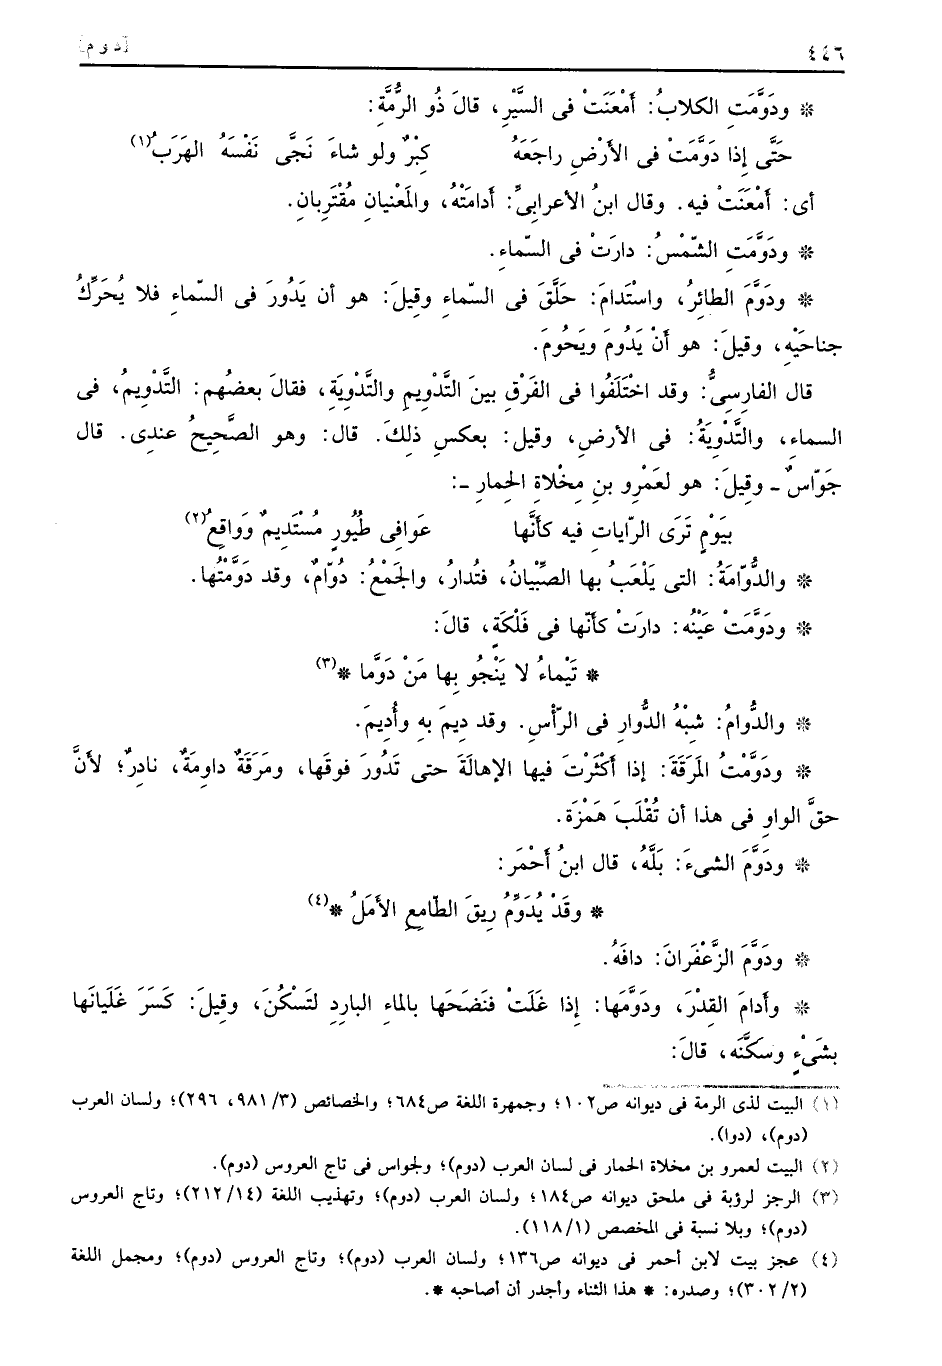 ٤٤٦ [دوم]
* ودَوَّمَتِ الكلابُ: أمْعَنَتْ فى السَّيْرِ، قالَ ذُو الرُّمَّة:
حَتَّى إذا دَوَّمَتْ فى الأرْضِ راجَعَهُ كِبْرٌ ولو شاءَ نَجَّى نَفْسَهُ الهَرَبُ(١)
أى: أمْعَنَتْ فيه. وقال ابنُ الأعرابىّ: أدامَتْهُ، والمَعْنيانِ مُقْتَرِبانِ.
* ودَوَّمَتِ الشّمْسُ: دارَتْ فى السّماءِ.
* ودَوَّمَ الطائرُ، واسْتَدامَ: حَلَّقَ فى السّماءِ وقيلَ: هو أن يَدُورَ فى السّماءِ فلا يُحَرِّكُ
جناحَيْهِ، وقيلَ: هو أنْ يَدُومَ ويَحُومَ.
قال الفارسىُّ: وقد اخْتَلَفُوا فى الفَرْقِ بينَ التَّدْويمِ والتَّدْوِيَةِ، فقالَ بعضُهم: التَّدْويمُ، فى
السماءِ، والتَّدْوِيَةُ: فى الأرضِ، وقيل: بعكسِ ذلكَ. قال: وهو الصَّحيحُ عندى. قال
جَوّاسٌ ـ وقيلَ: هو لعَمْرو بنِ مخْلاةِ الحِمارِ ـ:
بيَوْمٍ تَرَى الرّاياتِ فيه كأنَّها عَوافِى طيُورٍ مُسْتَديمٌ وَواقِعُ(٢)
* والدُّوّامَةُ: التى يَلْعَبُ بها الصِّبْيانُ، فتُدارُ، والجَمْعُ: دُوّامٌ، وقد دَوَّمْتُها.
* ودَوَّمَتْ عَيْنُه: دارَتْ كأنّها فى فَلْكَةٍ، قالَ:
* تَيْماءُ لا يَنْجُو بِها مَنْ دَوَّما *(٣)
* والدُّوامُ: شِبْهُ الدُّوارِ فى الرّأْسِ. وقد دِيمَ به وأُديمَ.
* ودَوَّمْتُ المَرَقَةَ: إذا أكْثَرْتَ فيها الإهالَةَ حتى تَدُورَ فوقَها، ومَرَقَةٌ داوِمَةٌ، نادرٌ؛ لأنَّ
حقَّ الواوِ فى هذا أن تُقْلَبَ هَمْزَة.
* ودَوَّمَ الشىءَ: بَلَّهُ، قال ابنُ أحْمَر:
* وقَدْ يُدَوِّمُ رِيقَ الطّامِعِ الأمَلُ *(٤)
* ودَوَّمَ الزَّعْفَرانَ: دافَهُ.
* وأدامَ القِدْرَ، ودَوَّمَها: إذا غَلَتْ فنَضَحَها بالماءِ البارِدِ لتَسْكُنَ، وقيلَ: كَسَرَ غَلَيانَها
بشَىْءٍ وسَكَّنَه، قالَ:
(١) البيت لذى الرمة فى ديوانه ص١٠٢؛ وجمهرة اللغة ص٦٨٤؛ والخصائص (٣/ ٩٨١، ٢٩٦)؛ ولسان العرب
(دوم)، (دوا).
(٢) البيت لعمرو بن مخلاة الحمار فى لسان العرب (دوم)؛ ولجواس فى تاج العروس (دوم).
(٣) الرجز لرؤبة فى ملحق ديوانه ص١٨٤؛ ولسان العرب (دوم)؛ وتهذيب اللغة (١٤/ ٢١٢)؛ وتاج العروس
(دوم)؛ وبلا نسبة فى المخصص (١/ ١١٨).
(٤) عجز بيت لابن أحمر فى ديوانه ص١٣٦؛ ولسان العرب (دوم)؛ وتاج العروس (دوم)؛ ومجمل اللغة
(٢/ ٣٠٢)؛ وصدره: * هذا الثناء وأجدر أن أصاحبه *.